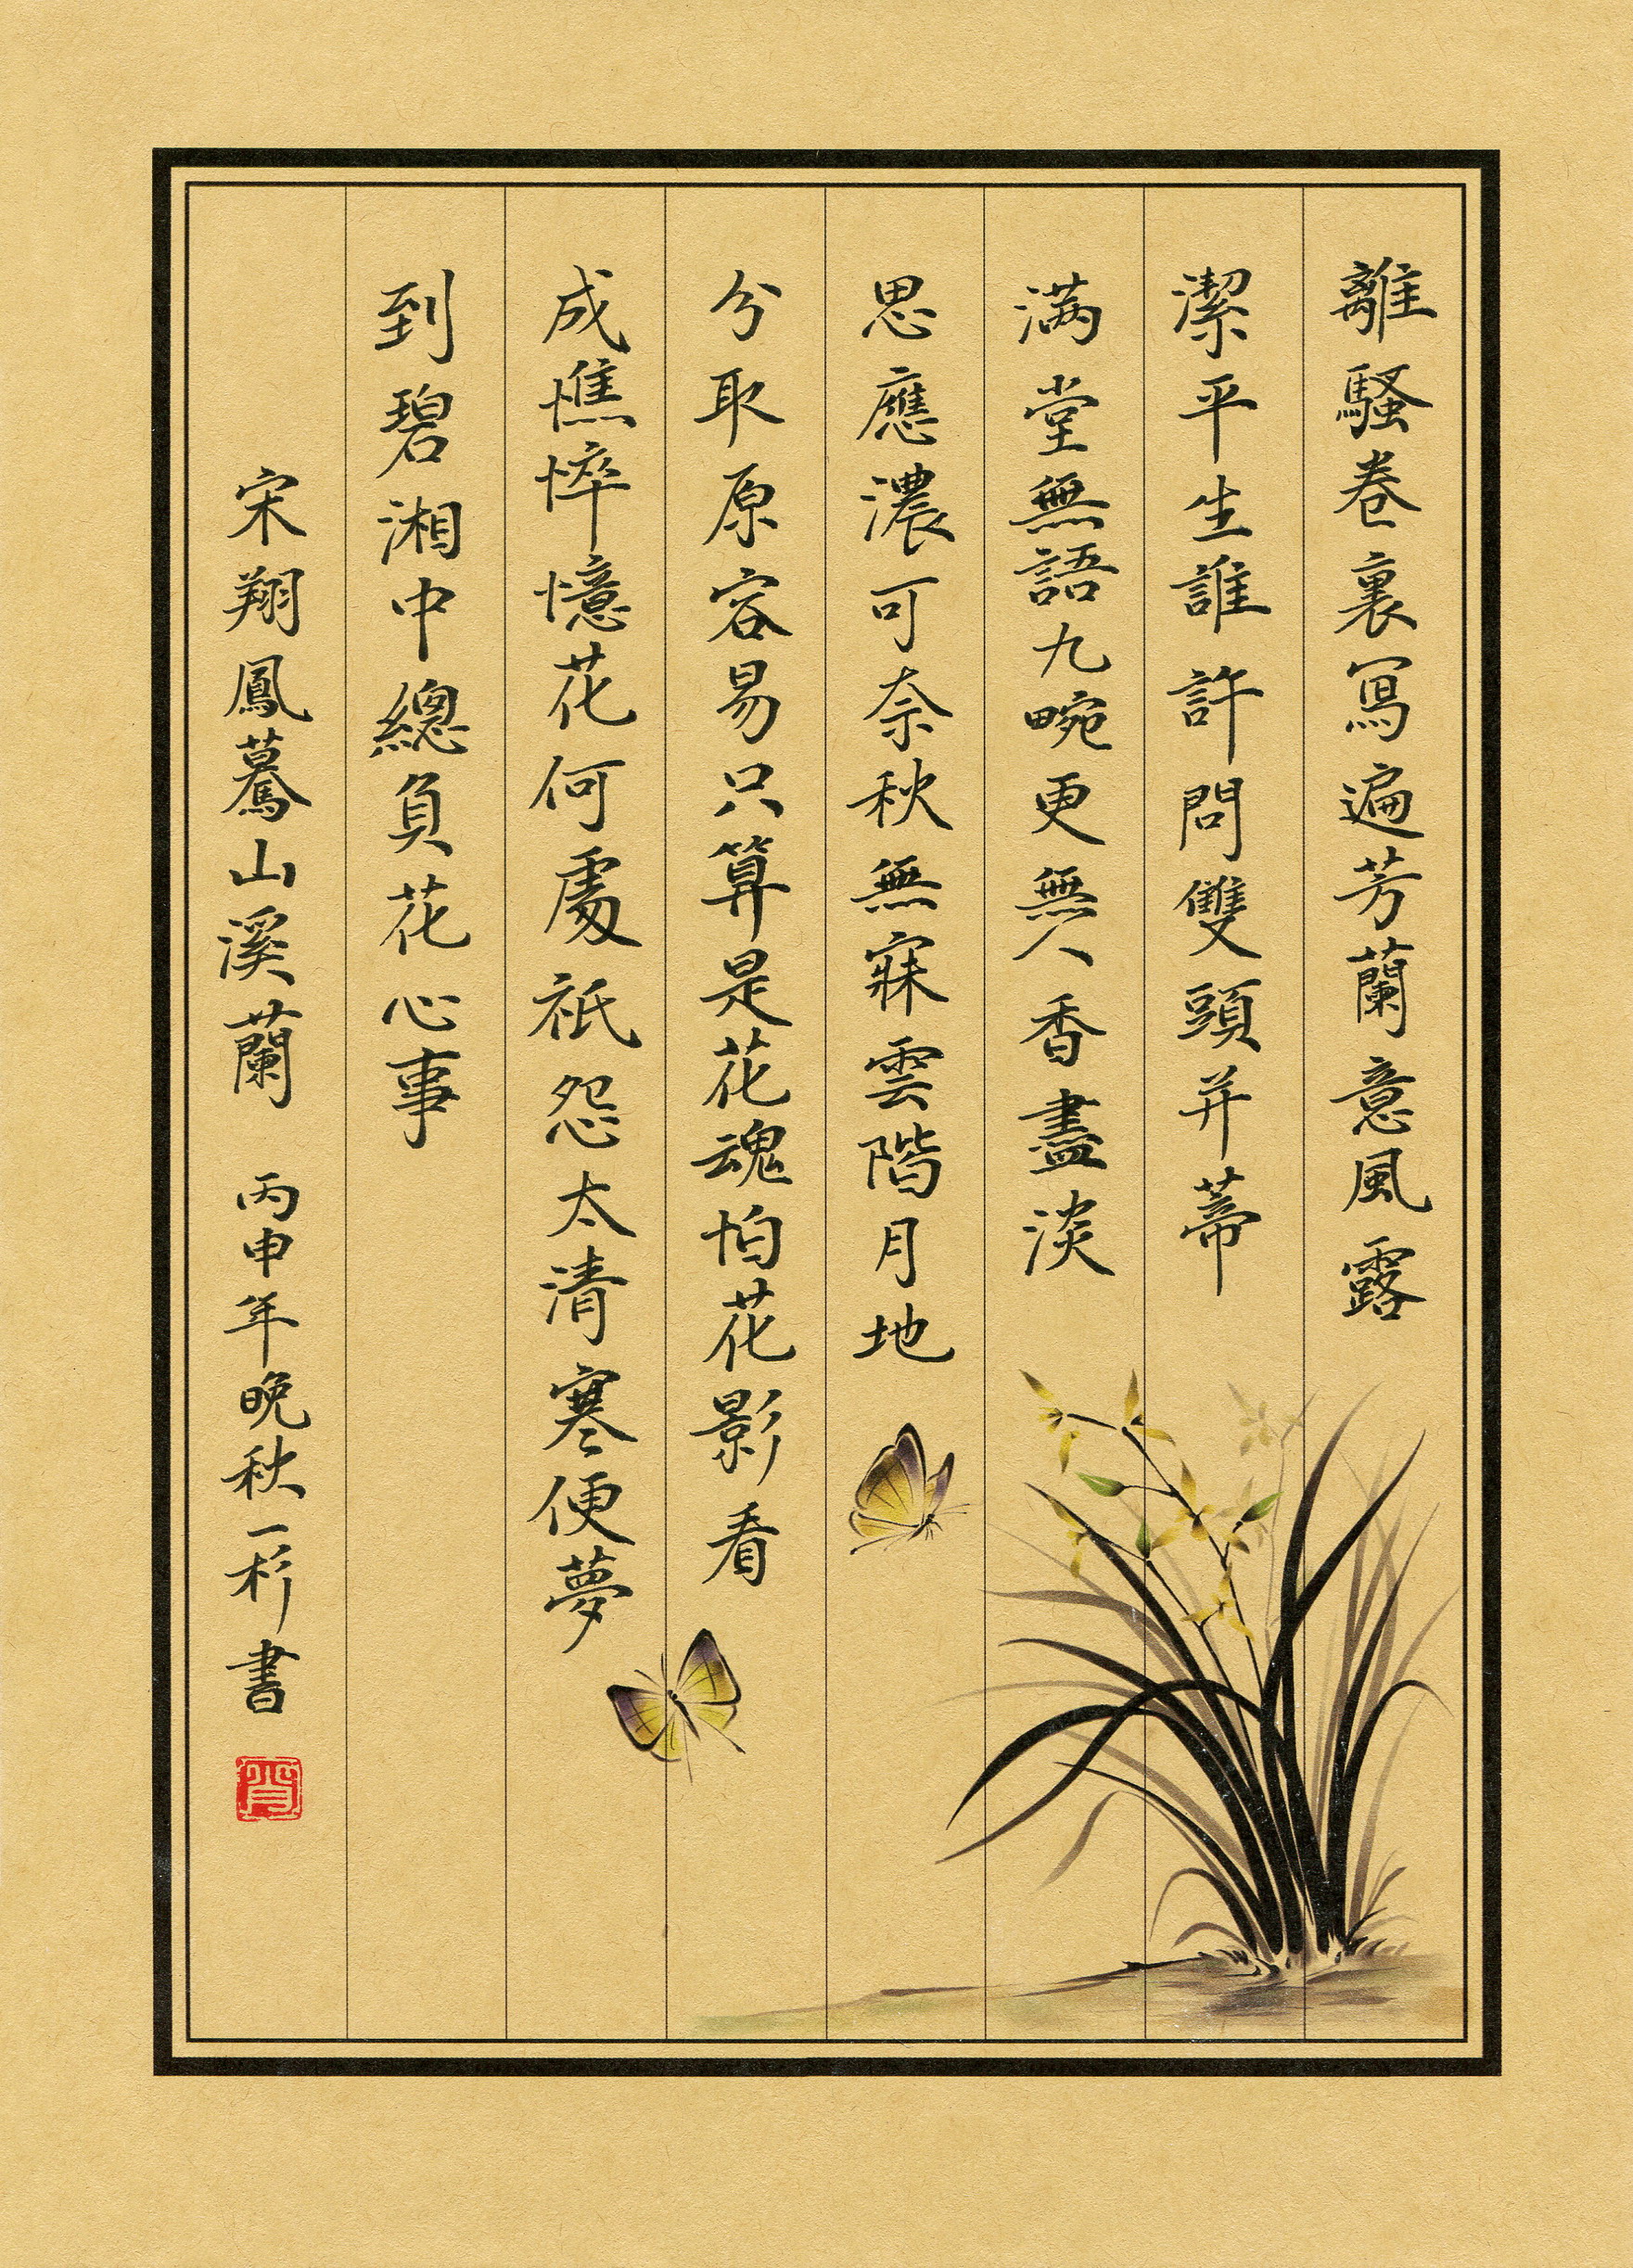 離騷卷裏寫遍芳蘭意風露
潔平生誰許問雙頭并蒂
满堂無語九畹更無人香盡淡
思應濃可奈秋無寐雲階月地
分取原容易只算是花魂怕花影看
成憔悴憶花何處祇怨太清寒便夢
到碧湘中總負花心事
宋翔鳳驀山溪蘭 丙申年晚秋一杉書